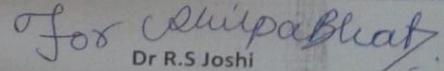 For Shilpa Bhat
Dr R.S Joshi